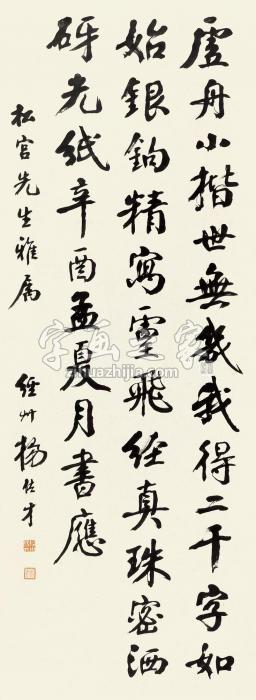 虛舟小楷世無幾我得二千字如
始銀鉤精寫靈飛經真珠密洒
砑光紙辛酉孟夏月書應
松宮先生雅属
楊
字画之家
huazhijia.com